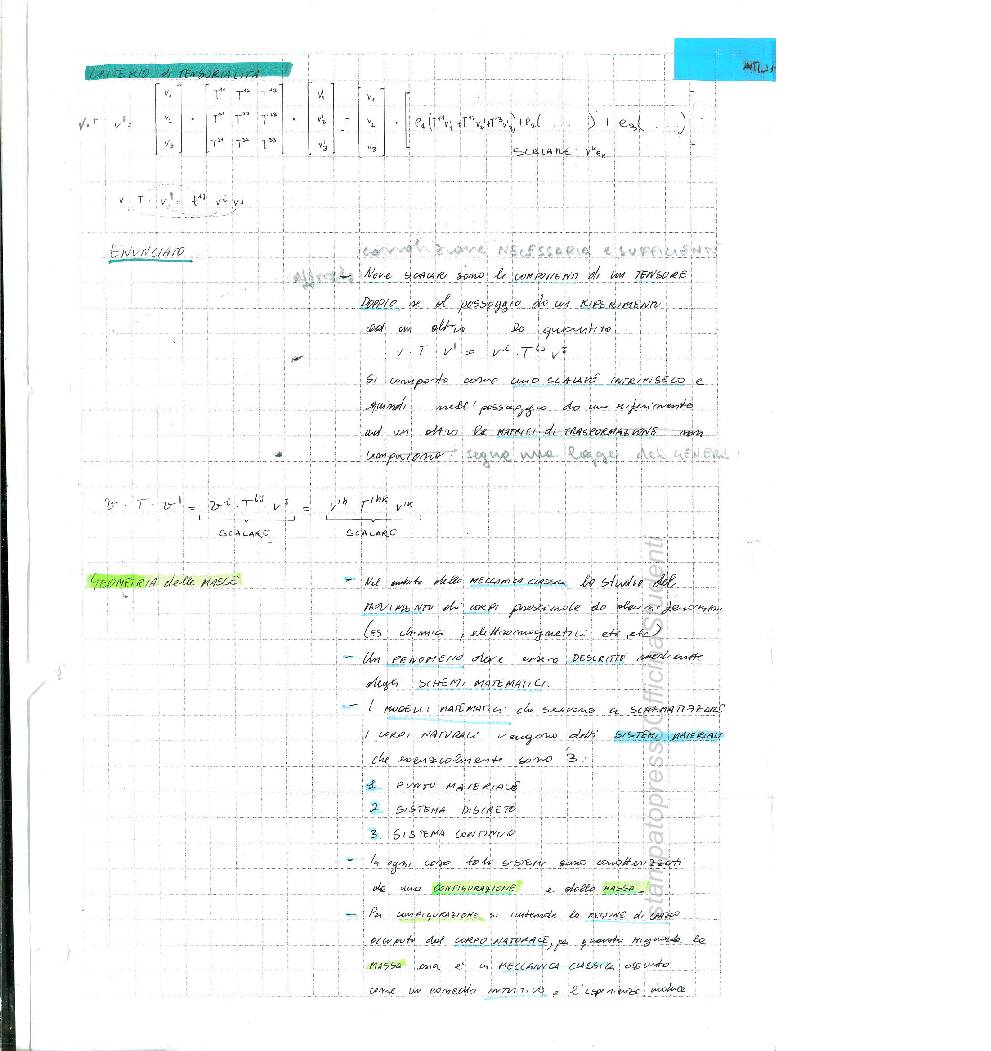 CRITERIO di TENSORIALITÀ
V.T v'= [v1 v2 v3] . [T11 T12 T13 T21 T22 T23 T31 T32 T33] . [v'1 v'2 v'3] = [v1 v2 v3] . [e1(T11v'1+T12v'2+T13v'3)+e2(......)+e3(...)]
SCALARE vkek
v. T. v'= tij vi vj
ENUNCIATO
condizione NECESSARIA e SUFFICIENTE
affinché
– Nove SCALARI siano le COMPONENTI di un TENSORE
DOPPIO se al passaggio da un RIFERIMENTO
ad un altro la quantità
v . T v' = vi . Tij vj
Si comporta come uno SCALARE INTRINSECO e
quindi nell'passaggio da un riferimento
ad un altro le MATRICI di TRASFORMAZIONE non
compaiono. segue una legge del GENERE:
v . T . v' = vi . Tij vj = v'h T'hk v'k
SCALARE SCALARE
GEOMETRIA delle MASSE
– Nel ambito della MECCANICA CLASSICA lo studio del
MOVIMENTO di CORPI prescinde da altri fenomeni
(es chimica, elettromagnetici etc etc)
– Un FENOMENO deve essere DESCRITTO mediante
degli SCHEMI MATEMATICI.
– I MODELLI MATEMATICI che servono a SCHEMATIZZARE
I CORPI NATURALI vengono detti SISTEMI MATERIALI
che essenzialmente sono 3:
1 PUNTO MATERIALE
2 SISTEMA DISCRETO
3. SISTEMA CONTINUO
– In ogni caso tali SISTEMI sono caratterizzati
da una CONFIGURAZIONE e dalla MASSA.
– Per CONFIGURAZIONE si intende la REGIONE di SPAZIO
occupata dal CORPO NATURALE, per quanto riguarda la
MASSA essa è in MECCANICA CLASSICA assunta
come un concetto INTUITIVO e l'esperienza induce
stampatopressoOfficinaStudenti